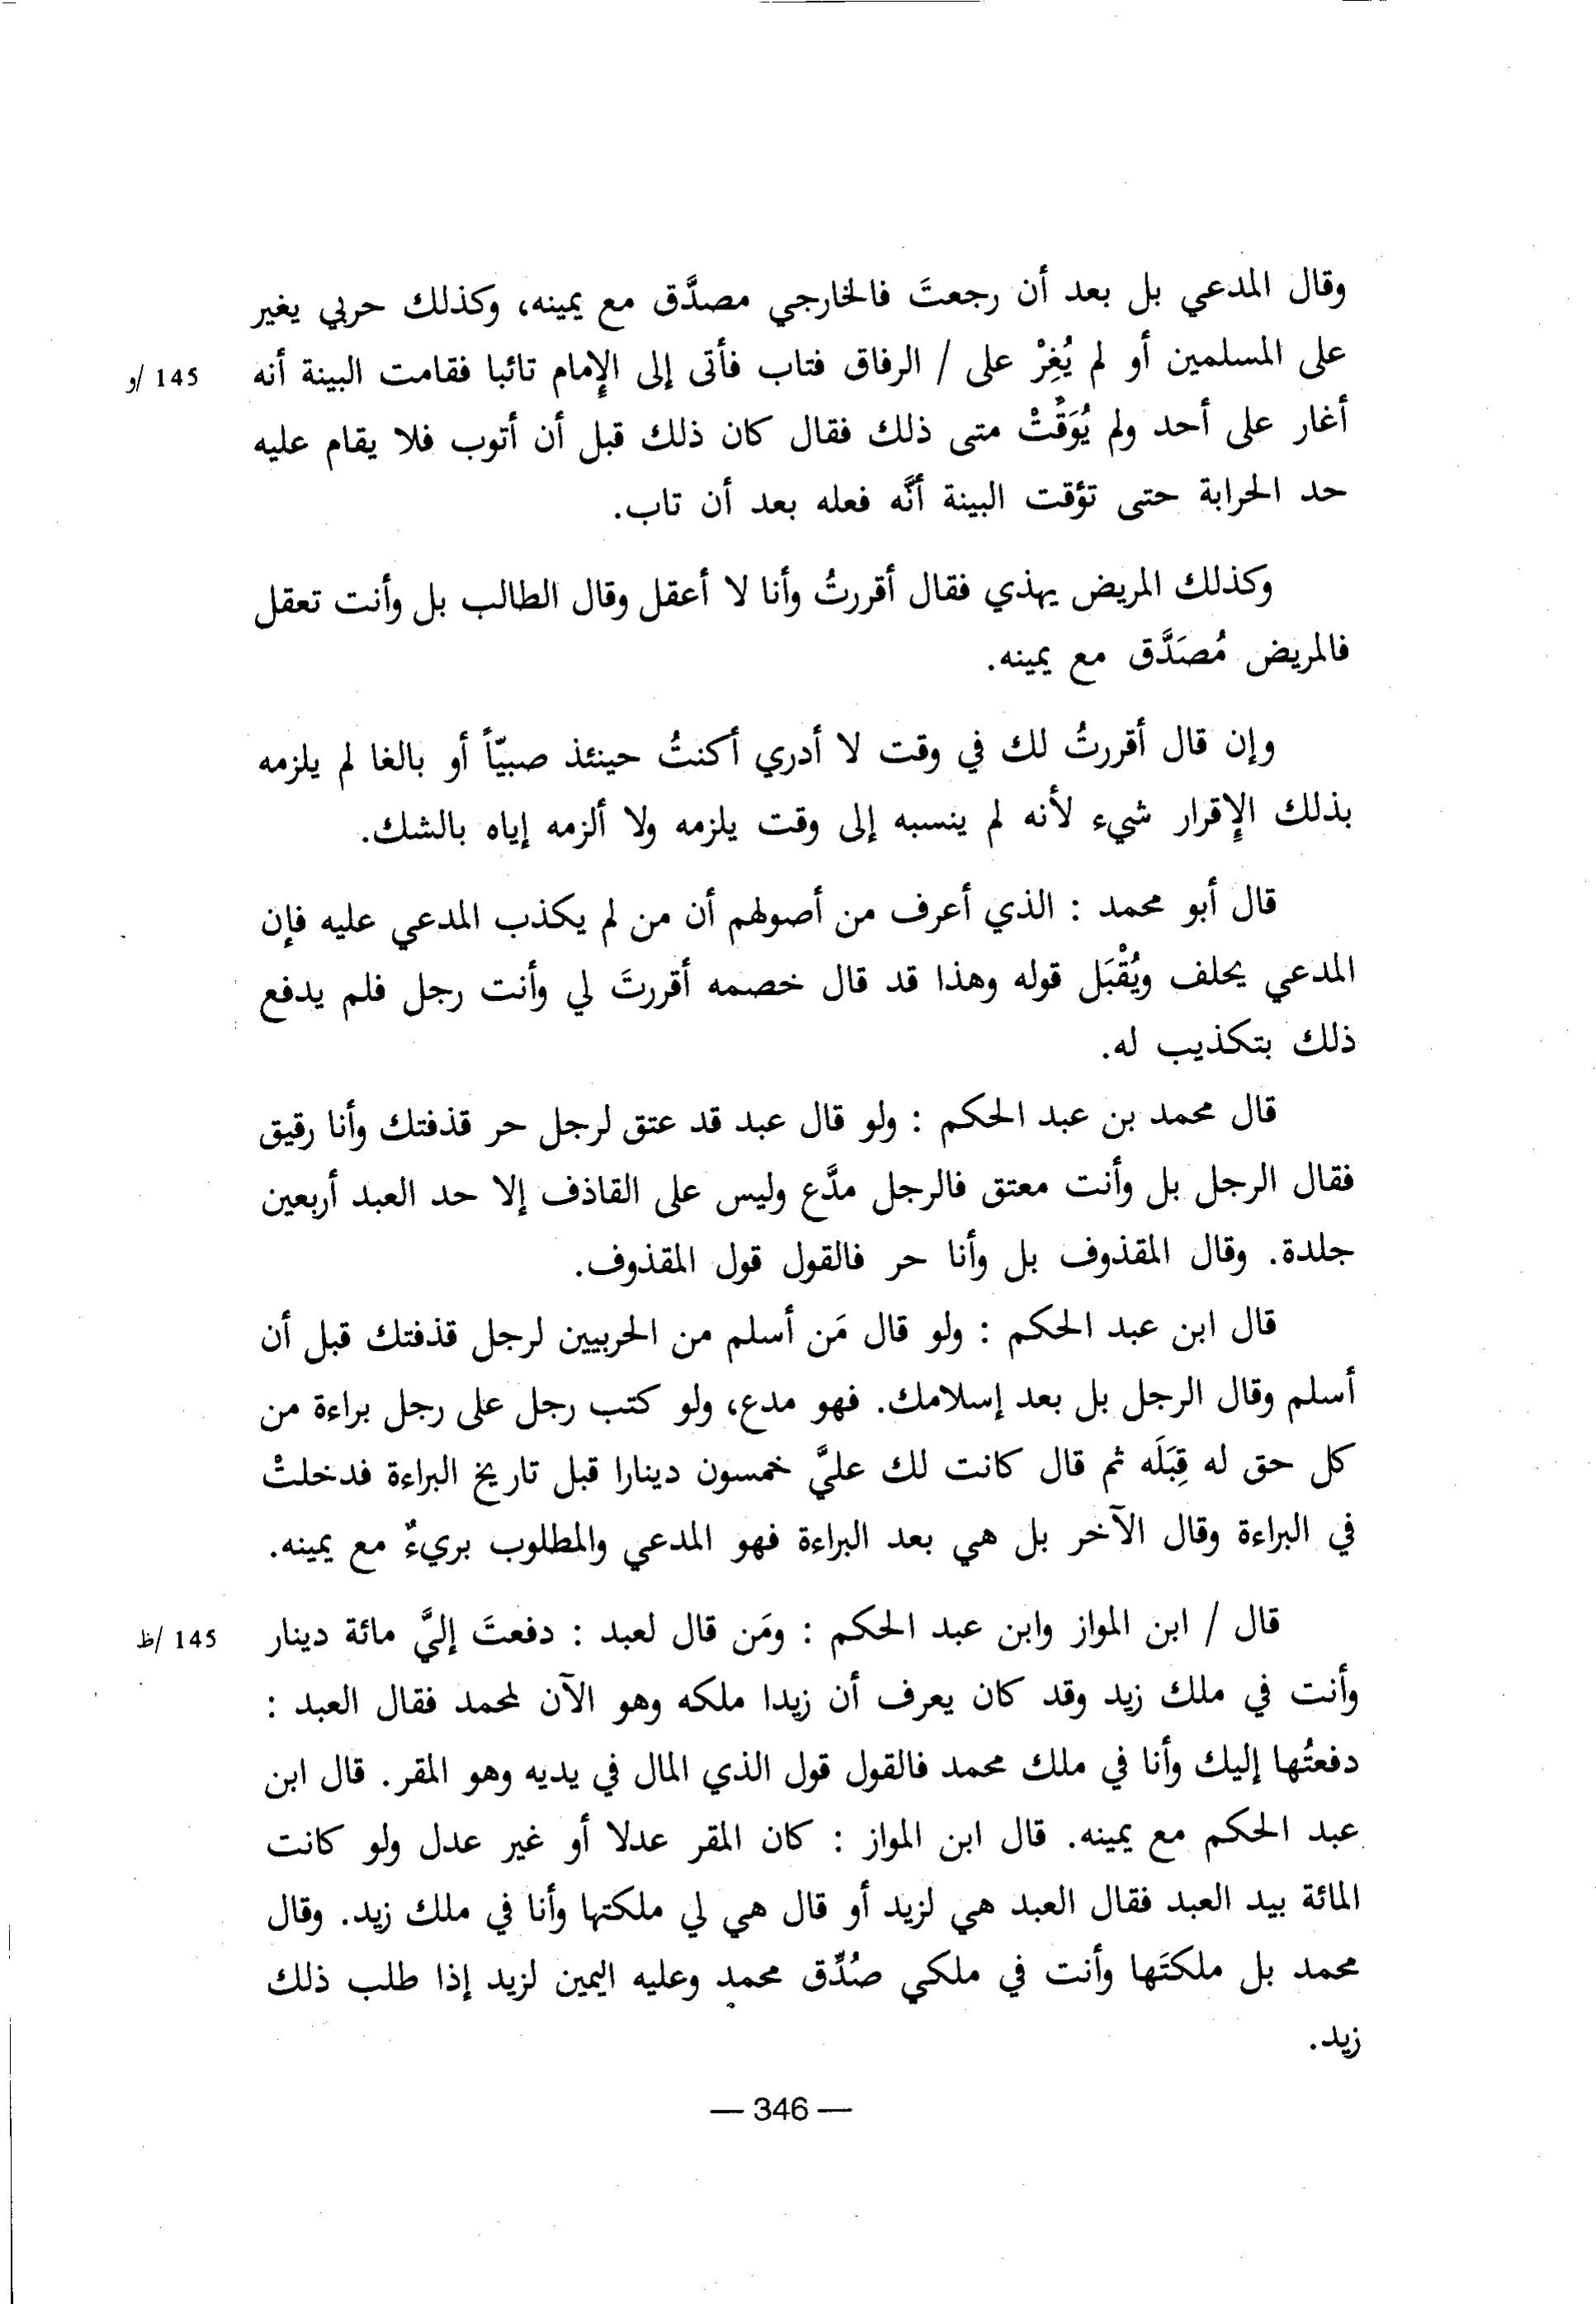 وقال المدعي بل بعد أن رجعتَ فالخارجي مصدَّق مع يمينه، وكذلك حربي يغير
على المسلمين أو لم يُغِرْ على / الرفاق فتاب فأتى إلى الإمام تائبا فقامت البينة أنه
145 /و
أغار على أحد ولم يُوَقَّتْ متى ذلك فقال كان ذلك قبل أن أتوب فلا يقام عليه
حد الحرابة حتى تؤقت البينة أنَّه فعله بعد أن تاب.
وكذلك المريض يهذي فقال أقررتُ وأنا لا أعقل وقال الطالب بل وأنت تعقل
فالمريض مُصَدَّق مع يمينه.
وإن قال أقررتُ لك في وقت لا أدري أكنتُ حينئذ صبيّاً أو بالغا لم يلزمه
بذلك الإقرار شيء لأنه لم ينسبه إلى وقت يلزمه ولا ألزمه إياه بالشك.
قال أبو محمد : الذي أعرف من أصولهم أن من لم يكذب المدعي عليه فإن
المدعي يحلف ويُقْبَل قوله وهذا قد قال خصمه أقررتَ لي وأنت رجل فلم يدفع
ذلك بتكذيب له.
قال محمد بن عبد الحكم : ولو قال عبد قد عتق لرجل حر قذفتك وأنا رقيق
فقال الرجل بل وأنت معتق فالرجل مدَّع وليس على القاذف إلا حد العبد أربعين
جلدة. وقال المقذوف بل وأنا حر فالقول قول المقذوف.
قال ابن عبد الحكم : ولو قال مَن أسلم من الحربيين لرجل قذفتك قبل أن
أسلم وقال الرجل بل بعد إسلامك. فهو مدع، ولو كتب رجل على رجل براءة من
كل حق له قِبَلَه ثم قال كانت لك عليَّ خمسون دينارا قبل تاريخ البراءة فدخلتْ
في البراءة وقال الآخر بل هي بعد البراءة فهو المدعي والمطلوب بريءٌ مع يمينه.
قال / ابن المواز وابن عبد الحكم : ومَن قال لعبد : دفعتَ إليَّ مائة دينار
145 /ظ
وأنت في ملك زيد وقد كان يعرف أن زيدا ملكه وهو الآن لمحمد فقال العبد :
دفعتُها إليك وأنا في ملك محمد فالقول قول الذي المال في يديه وهو المقر. قال ابن
عبد الحكم مع يمينه. قال ابن المواز : كان المقر عدلا أو غير عدل ولو كانت
المائة بيد العبد فقال العبد هي لزيد أو قال هي لي ملكتها وأنا في ملك زيد. وقال
محمد بل ملكتَها وأنت في ملكي صُدِّق محمد وعليه اليمين لزيد إذا طلب ذلك
زيد.
— 346 —